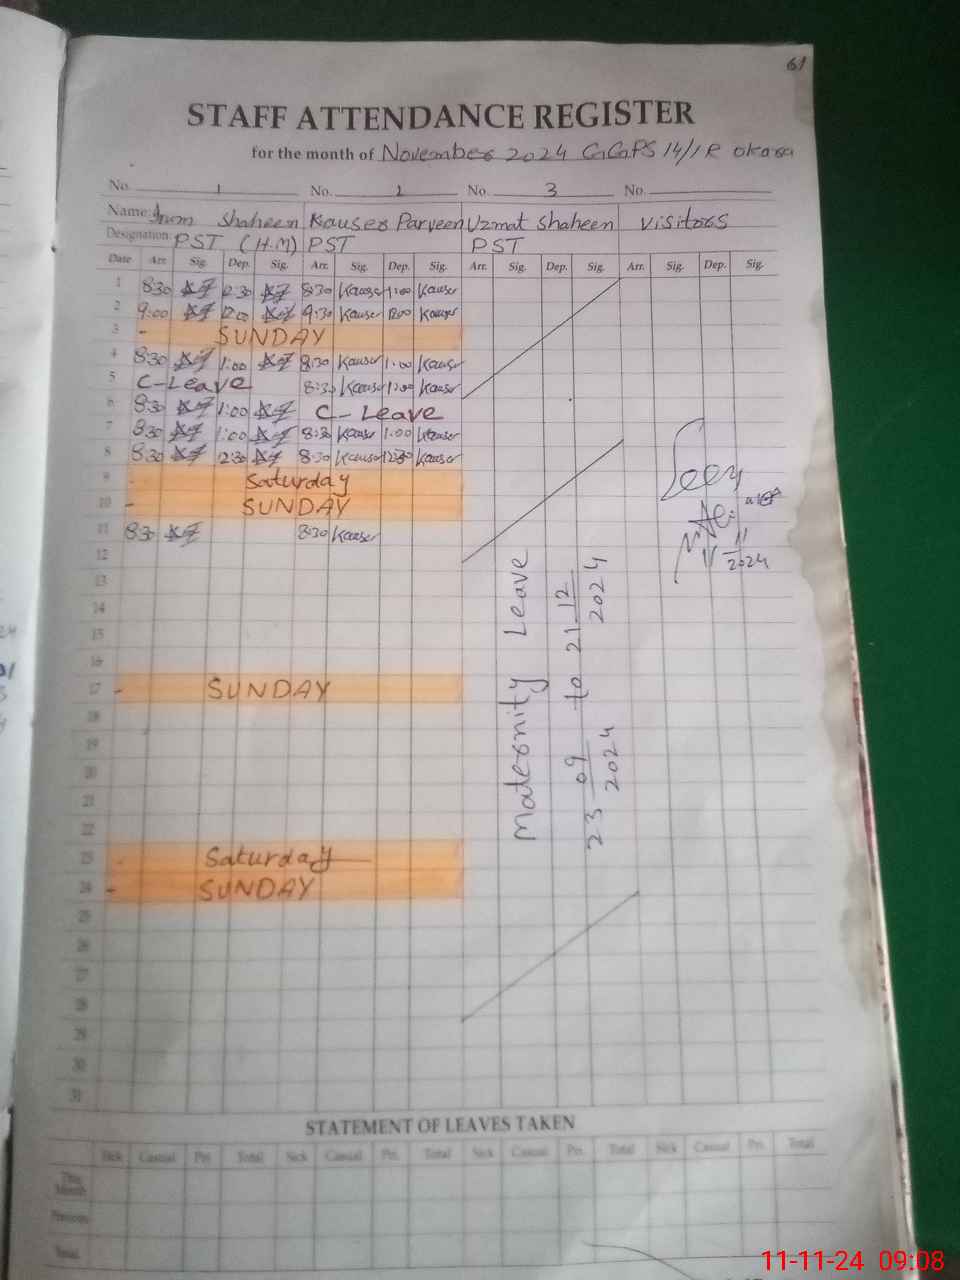 61
STAFF ATTENDANCE REGISTER
for the month of November 2024 GGPS 14/1R Okara
No. 1 No. 2 No. 3 No.
Name: Irum Shaheen Kauser Parveen Uzmat Shaheen Visitors
Designation: PST (H.M) PST PST
Date Arr. Sig. Dep. Sig. Arr. Sig. Dep. Sig. Arr. Sig. Dep. Sig. Arr. Sig. Dep. Sig.
1 8:30 12:30 8:30 Kauser 1:00 Kauser
2 9:00 12:00 9:30 Kauser 12:00 Kauser
3 - SUNDAY
4 8:30 1:00 8:30 Kauser 1:00 Kauser
5 C-Leave 8:30 Kauser 1:00 Kauser
6 8:30 1:00 C-Leave
7 8:30 1:00 8:30 Kauser 1:00 Kauser
8 8:30 12:30 8:30 Kauser 12:30 Kauser
9 - Saturday
10 - SUNDAY
11 8:30 8:30 Kauser
12
13
14
15
16
17 - SUNDAY
18
19
20
21
22
23 - Saturday
24 - SUNDAY
25
26
27
28
29
30
31
Maternity Leave
23 09 2024 to 21 12 2024
Seen
11 11 2024
STATEMENT OF LEAVES TAKEN
Sick Casual Pri. Total Sick Casual Pri. Total Sick Casual Pri. Total Sick Casual Pri. Total
This Month
Previous
Total
11-11-24 09:08